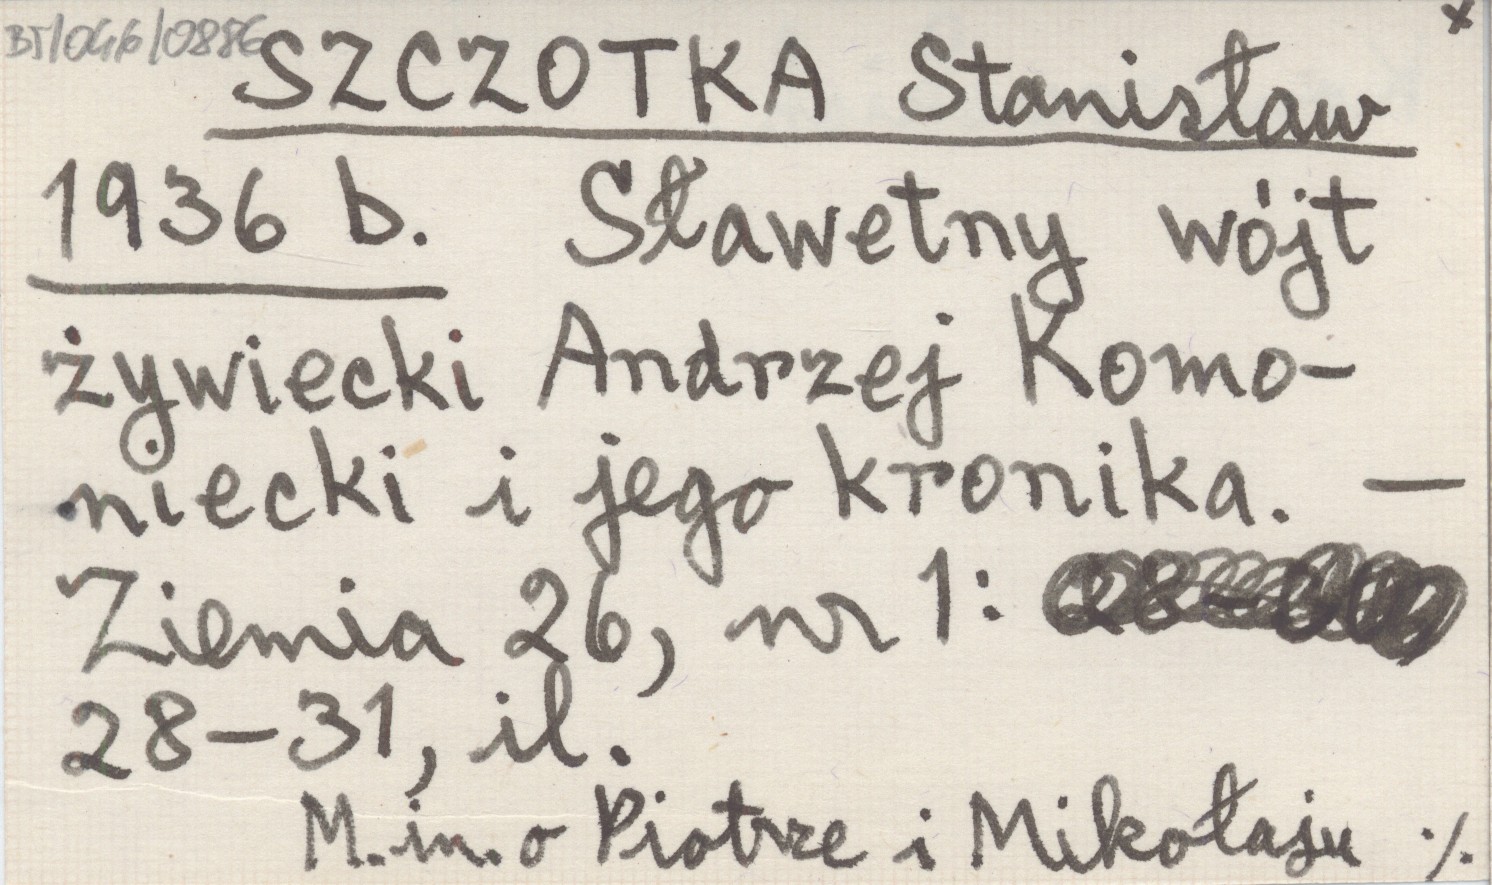 BJ/046/0886
x
SZCZOTKA Stanisław
1936 b. Sławetny wójt
żywiecki Andrzej Komo-
niecki i jego kronika. —
Ziemia 26, nr 1:
28–31, il.
M.in. o Piotrze i Mikołaju ./.